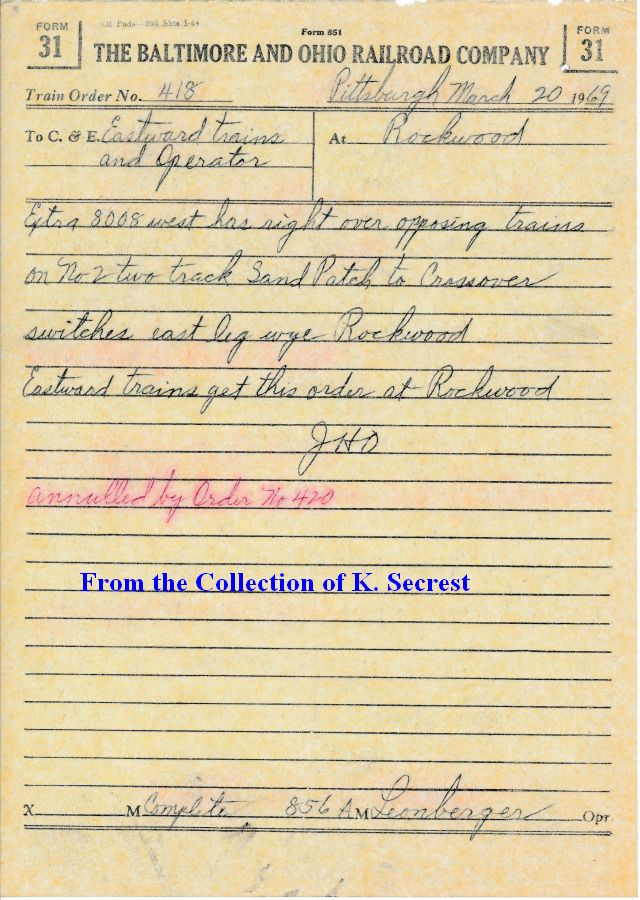 FORM 31
M Pads 200 Shts 5-64
Form 851
FORM 31
THE BALTIMORE AND OHIO RAILROAD COMPANY
Train Order No. 418 Pittsburgh March 20 1969
To C. & E. Eastward trains
and Operator
At Rockwood
Extra 8008 west has right over opposing trains
on No 2 two track Sand Patch to Crossover
switches east leg wye Rockwood
Eastward trains get this order at Rockwood
JHD
annulled by Order No 420
From the Collection of K. Secrest
X M Complete 856 A M Leonberger Opr